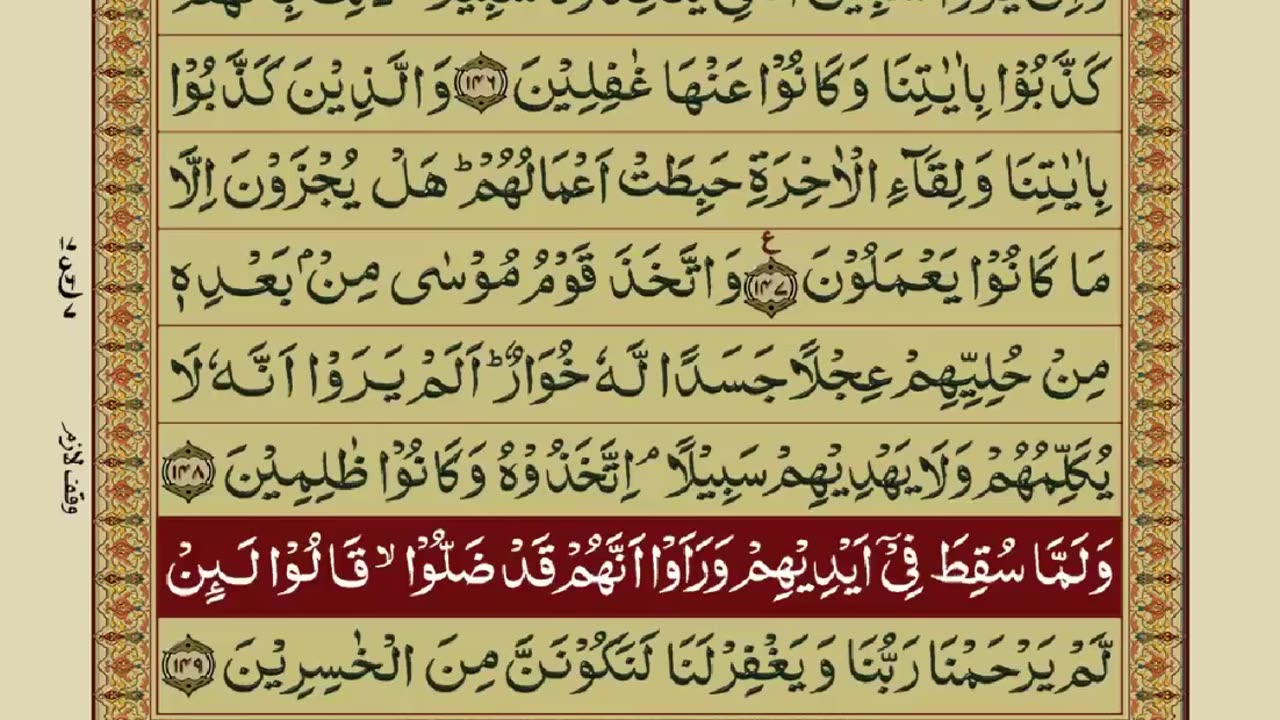 كَذَّبُوْا بِاٰيٰتِنَا وَكَانُوْا عَنْهَا غٰفِلِيْنَ ۝۱۴۶ وَالَّذِيْنَ كَذَّبُوْا
بِاٰيٰتِنَا وَلِقَآءِ الْاٰخِرَةِ حَبِطَتْ اَعْمَالُهُمْ ؕ هَلْ يُجْزَوْنَ اِلَّا
مَا كَانُوْا يَعْمَلُوْنَ ۝۱۴۷ ع وَاتَّخَذَ قَوْمُ مُوْسٰى مِنْۢ بَعْدِهٖ
مِنْ حُلِيِّهِمْ عِجْلًا جَسَدًا لَّهٗ خُوَارٌ ؕ اَلَمْ يَرَوْا اَنَّهٗ لَا
يُكَلِّمُهُمْ وَلَا يَهْدِيْهِمْ سَبِيْلًا ۘ اِتَّخَذُوْهُ وَكَانُوْا ظٰلِمِيْنَ ۝۱۴۸
وَلَمَّا سُقِطَ فِيْۤ اَيْدِيْهِمْ وَرَاَوْا اَنَّهُمْ قَدْ ضَلُّوْا ۙ قَالُوْا لَىِٕنْ
لَّمْ يَرْحَمْنَا رَبُّنَا وَيَغْفِرْلَنَا لَنَكُوْنَنَّ مِنَ الْخٰسِرِيْنَ ۝۱۴۹
وقف لازم